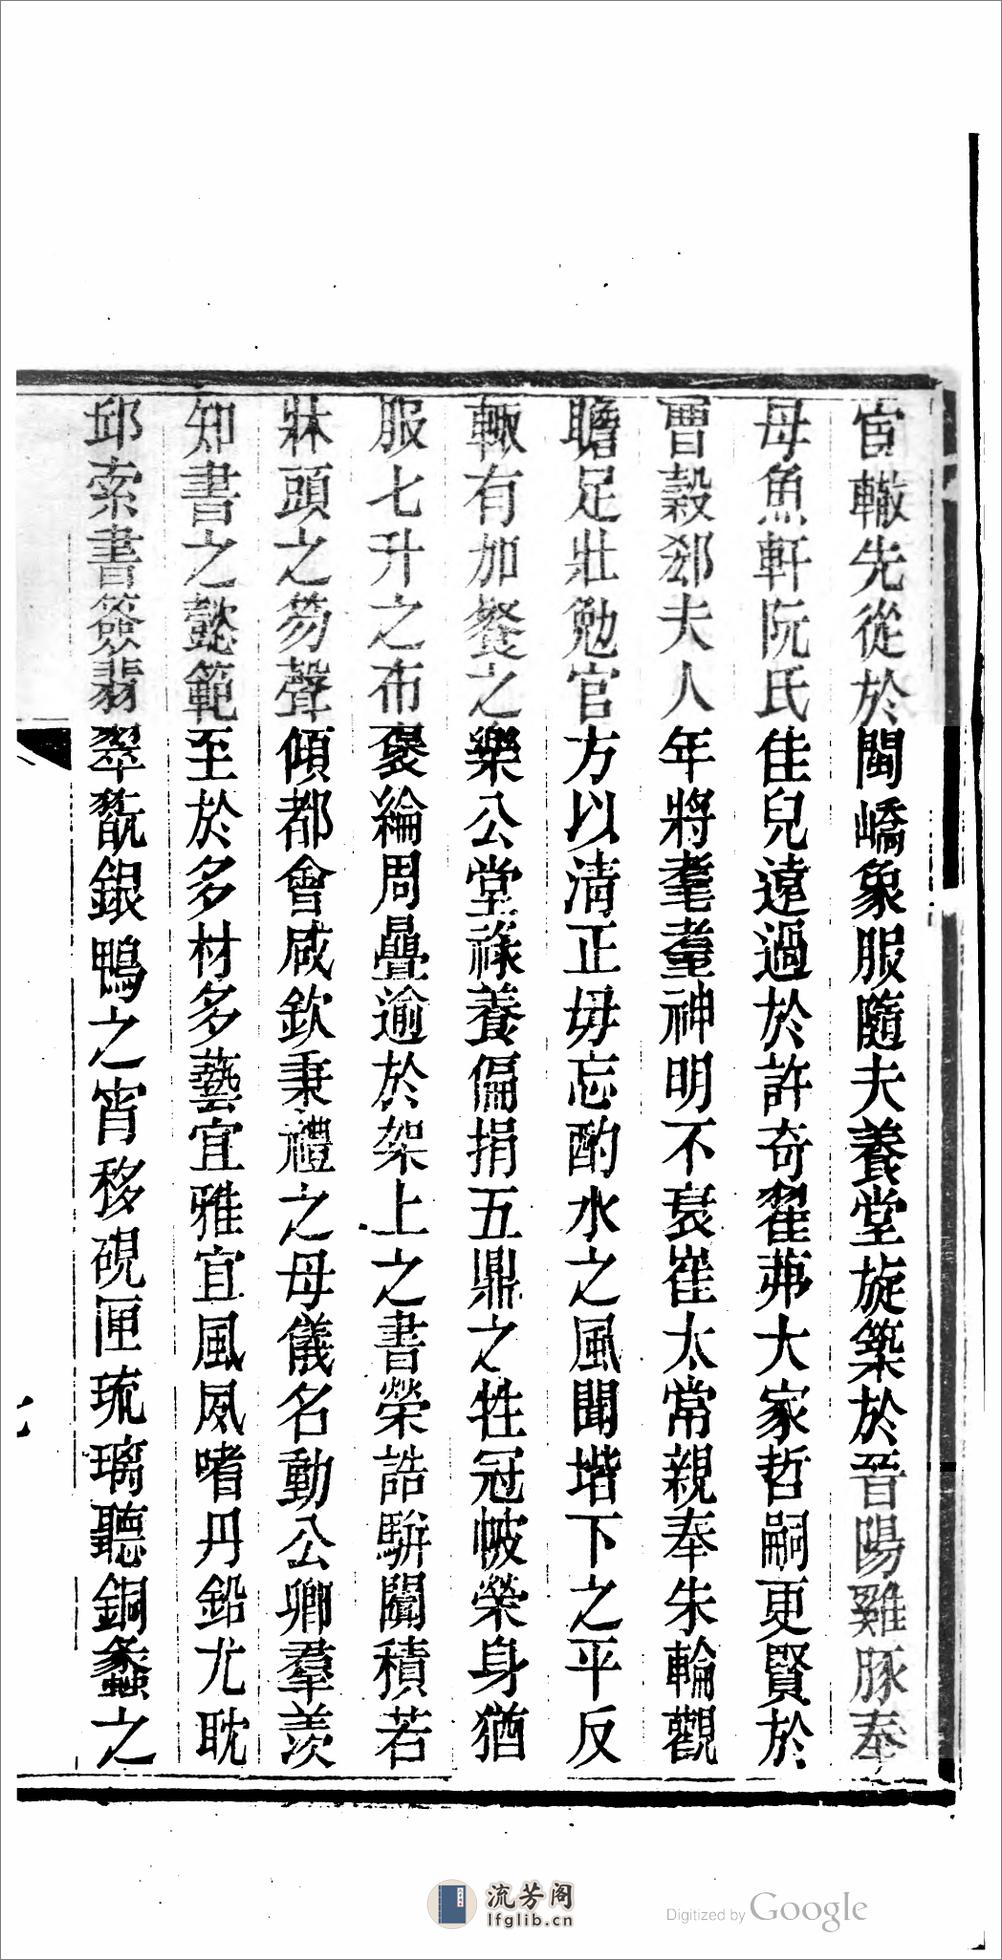 宦轍先從於閩嶠象服隨夫養堂旋築於晉陽雞豚奉
母魚軒阮氏佳兒遠過於許奇翟茀大家哲嗣更賢於
曹穀郄夫人年將耄耋神明不衰崔太常親奉朱輪觀
瞻足壯勉官方以清正毋忘酌水之風聞堦下之平反
輒有加餐之樂公堂祿養偏捐五鼎之牲冠帔榮身猶
服七升之布褒綸周疊逾於架上之書榮誥駢闐積若
牀頭之笏聲傾都會咸欽秉禮之母儀名動公卿羣羨
知書之懿範至於多材多藝宜雅宜風夙嗜丹鉛尤耽
邱索書簽翡翠翫銀鴨之宵移硯匣琉璃聽銅蠡之
流芳阁
lfglib.cn
Digitized by Google